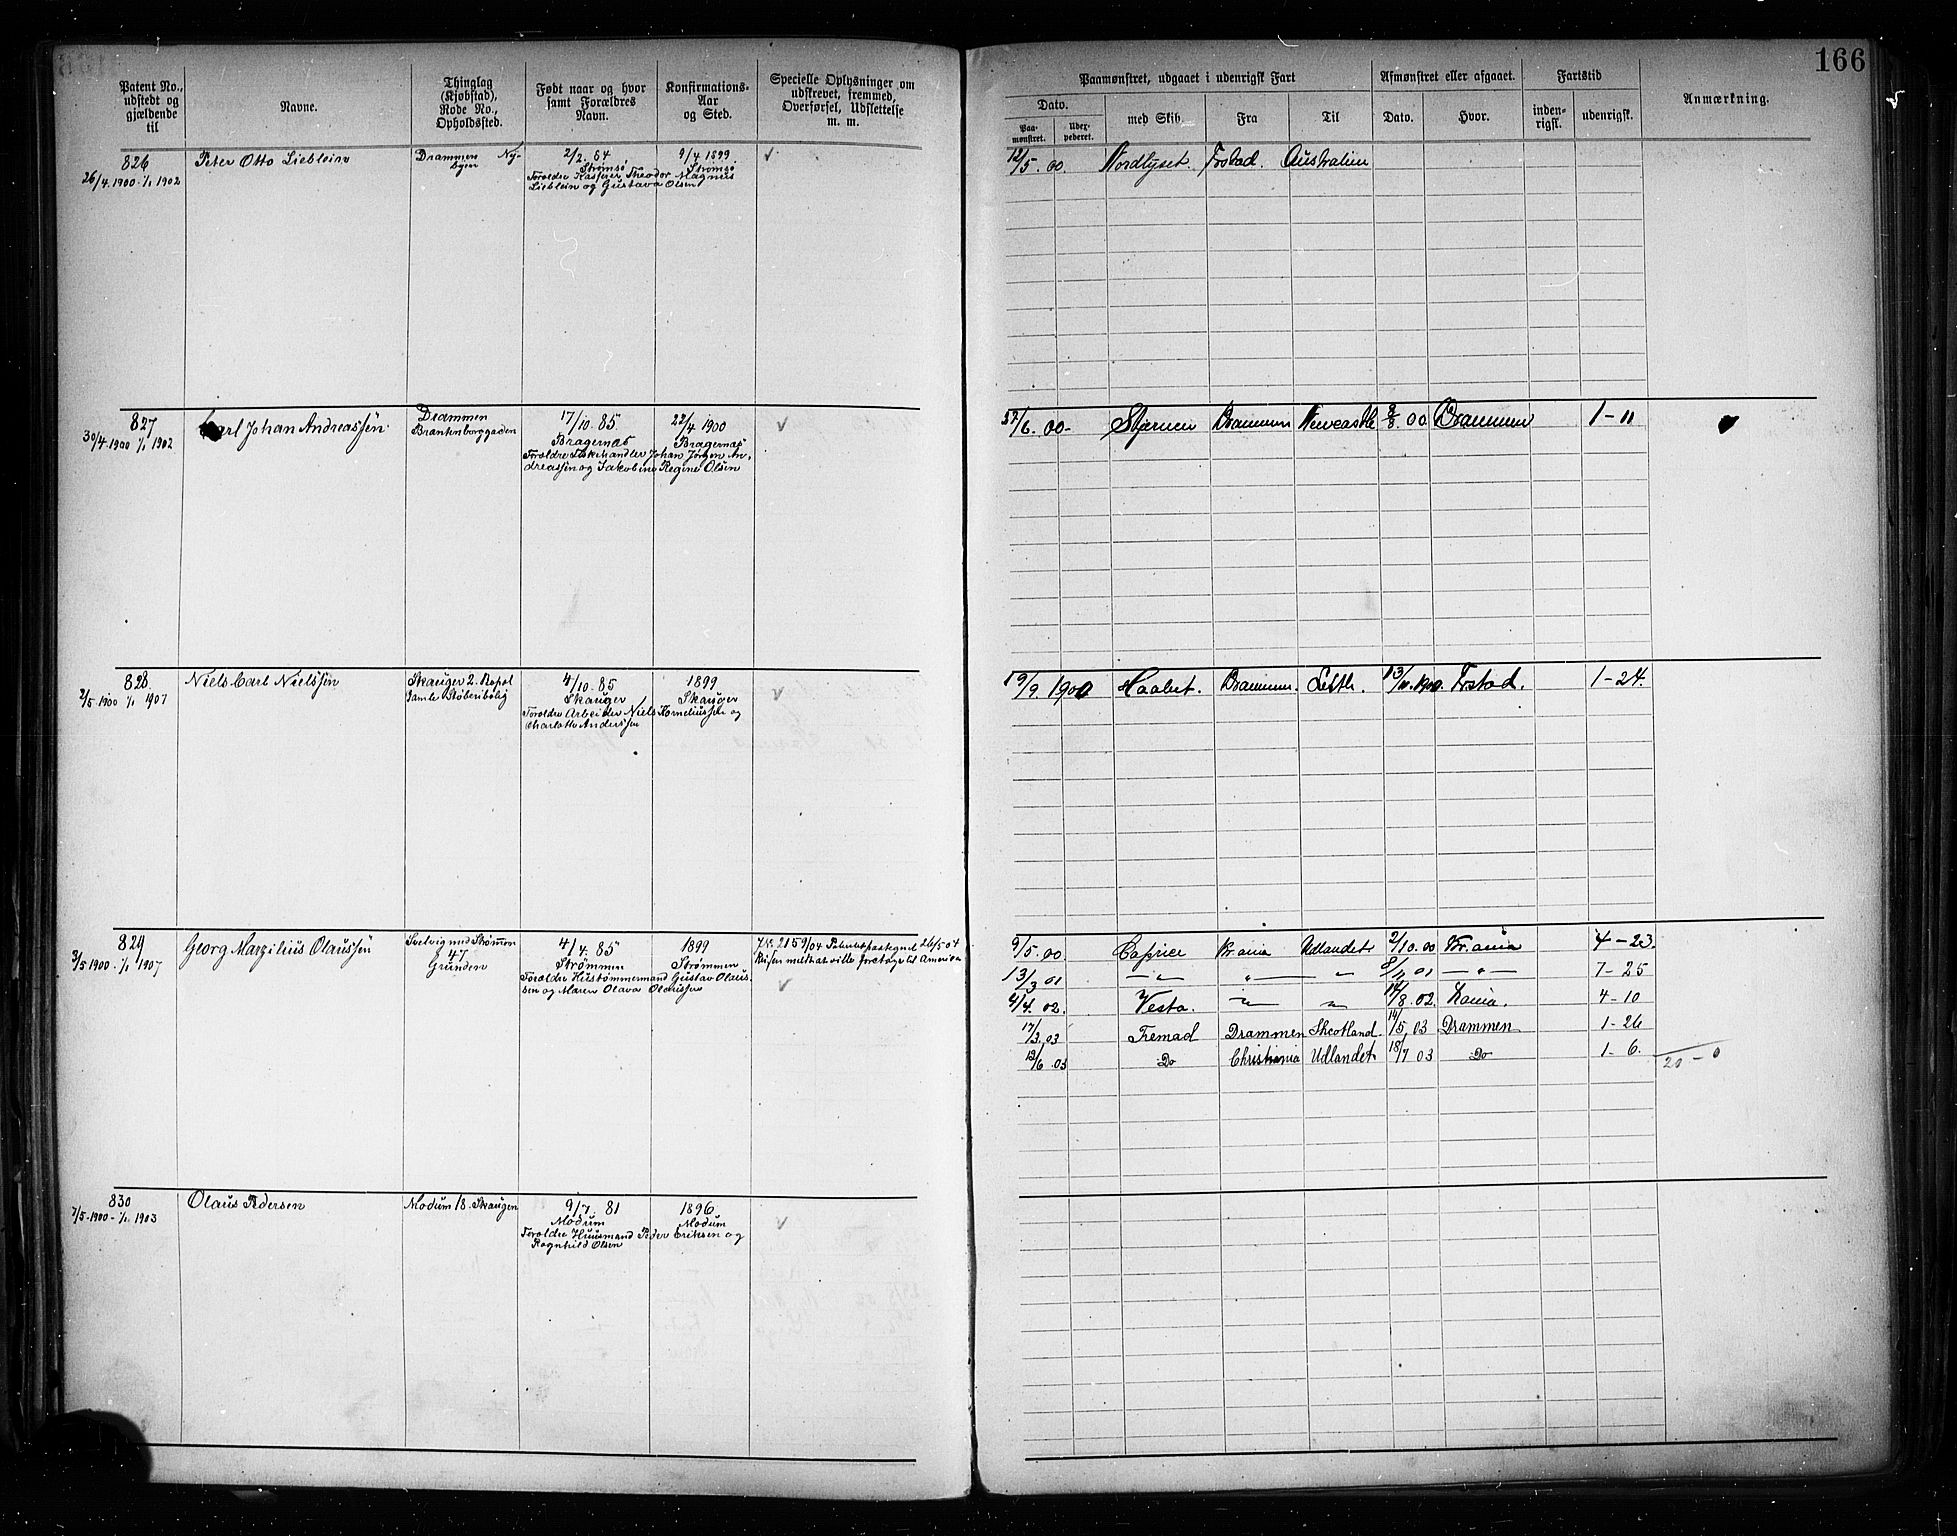 166
Patent No., udstedt og gjældende til
Navne.
Thinglag (Kjøbstad), Rode No., Opholdssted.
Født naar og hvor samt Forældres Navn.
Konfirmations-Aar og Sted.
Specielle Oplysninger om udskrevet, fremmed, Overførsel, Udslettelse m. m.
Paamønstret, udgaaet i udenrigsk Fart
Afmønstret eller afgaaet.
Fartstid
Anmærkning.
Dato.
Paa-mønstret.
med Skib.
Fra
Til
Dato.
Hvor.
inden-rigsk.
udenrigsk.
826
26/4.1900.1/1 1902
Peter Otto Lieblein
Drammen Ny-
byen
2/2. 84
Strømsø
9/4 1899
Strømsø
Foreldre Kasper Theodor Magnus
Lieblein og Gustava Olsen
12/5. 00. Nordlyset. Frstad. Australien
827
30/4.1900 1/1 1902
Carl Johan Andreassen
Drammen
17/10. 85.
Bragernæs
22/4 1900
Bragernæs
Foreldre Johan Jørgen An-
dreassen og Jakobine Regine Olsen
/6. 00. Stjernen Drammen Newcastle 8/8. 00. Drammen 1-11
828
2/5 1900 1/1 1907
Niels Carl Nielssen
Skauger 2.
Gamle Støberibolig
4/10. 85
Skauger
1899
Skauger
Foreldre Arbeider Niels Korneliussen og
Charlotte Anderssen
19/9. 1900 Haabet. Drammen. Leith. 13/11.1900. Frstad. 1-24.
829
3/5 1900. 1/1 1907
Georg Marzilius Olaussen
Svelvig med Strømmen
47
Grunden
4/4. 85
Strømmen
1899
Strømmen
Foreldre Gustav Olaus-
sen og Maren Olava Olaussen
foretage til Amerika
9/5. 00. Caprice Kr.ania Udlandet 2/10.00 Kr.ania 4-23.
13/3 01 — „ — „ „ 8/11 01 — „ — 7-25
4/4. 02. Vesta. „ „ 14/8. 02. Kania. 4-10
17/3.03 Fremad Drammen Shcotland. 14/5 03 Drammen 1-26
12/6.03 Do Christiania Udlandet 18/7 03 Do 1-6.
20-0
830
7/5-1900-1/1 1903
Olaus Pedersen
Modum 18. Skaugen
9/7. 81
Modum
1896
Modum
Foreldre Huusmand Peder Eriksen og
Ragnhild Olsen